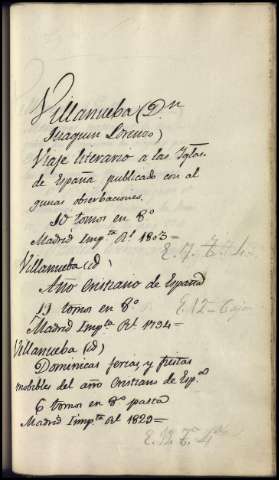 Villanueba (Dn
Juaquin Lorenzo)
Viaje literario a las Yglas.
de España publicado con al
gunas obserbaciones.
10 tomos en 8º
Madrid Impta Rl 1803=
E. 17. T. 4
Villanueba (id)
Año Cristiano de España
19 tomos en 8º
E. 12 Cajon
Madrid Impta Rl 1794=
Villanueba (id)
Dominicas ferias, y fiestas
mobibles del año Cristiano de Espª
6 tomos en 8º pasta
Madrid Impta Rl 1820=
E. 12. T. 4